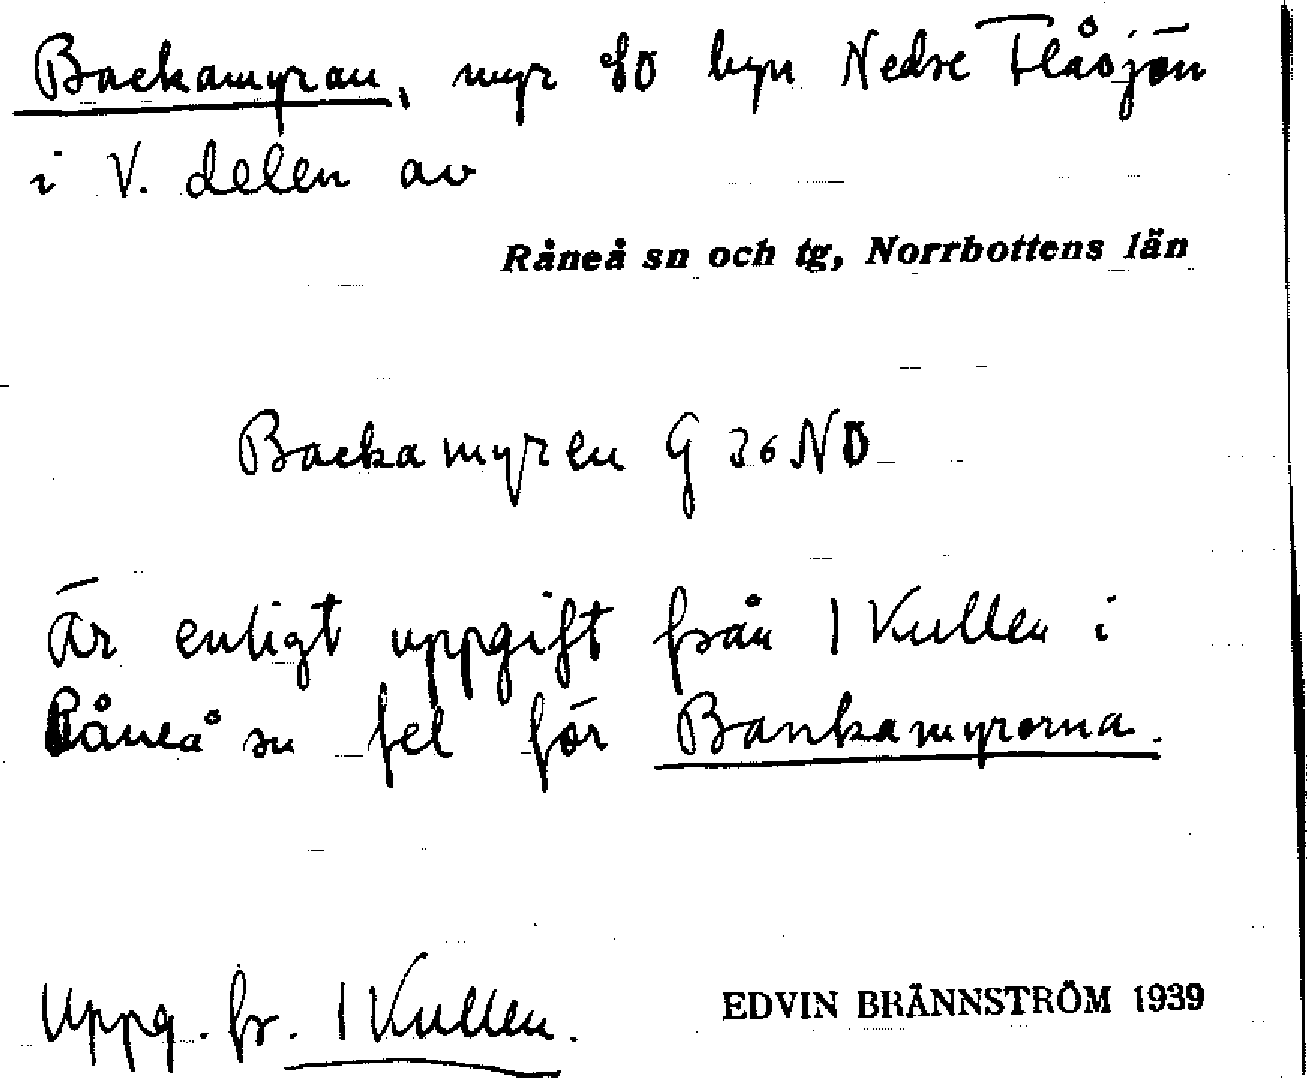 Backamyran, myr SO byn Nedre Flåsjön
i V. delen av
Råneå sn och tg, Norrbottens län
Backamyren G 36 NO
Är enligt uppgift från 1 Kullen i
Råneå sn fel för Bankamyrorna.
Uppg. fr. 1 Kullen.
EDVIN BRÄNNSTRÖM 1939